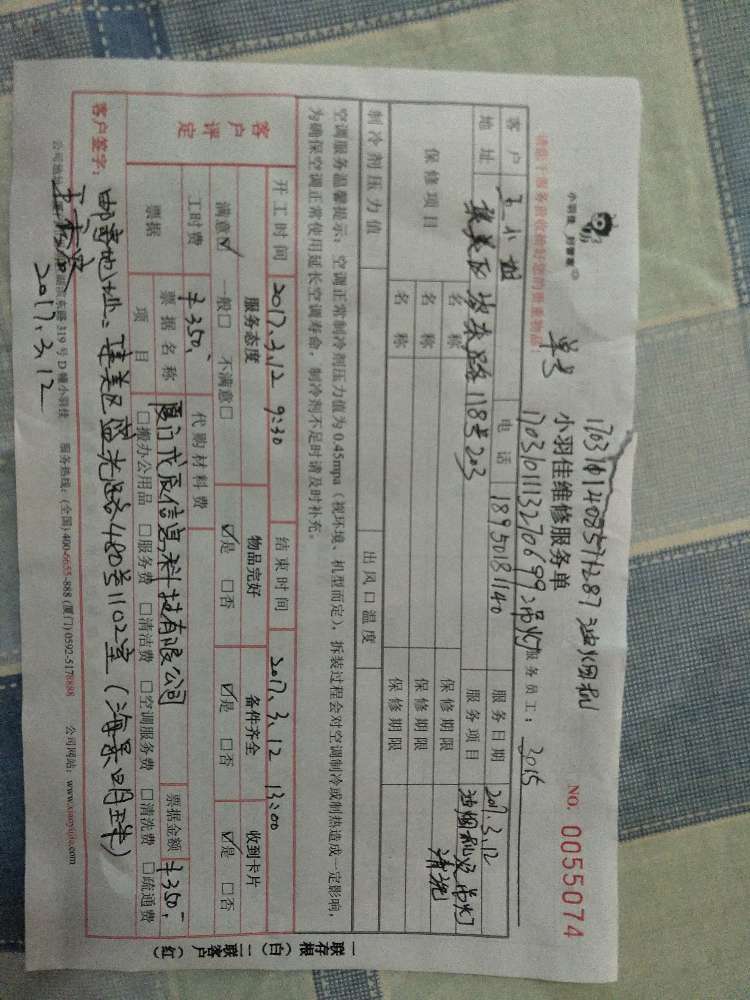 小羽佳 好管家
请您于服务前收拾好您的贵重物品!
单号 170310140857l287 油烟机
小羽佳维修服务单
NO. 0055074
170310111327０699 吊灯
服务员工: 2015
客户 王小姐 电话 18950181140 服务日期 2017.3.12
地址 集美区 路118号203 服务项目 油烟机及吊灯清洗
保修项目 名称 保修期限
名称 保修期限
名称 保修期限
制冷剂压力值 出风口温度
空调服务温馨提示: 空调正常制冷剂压力值为0.45mpa(视环境、机型而定), 拆装过程会对空调制冷或制热造成一定影响,
为确保空调正常使用延长空调寿命, 制冷剂不足时请及时补充。
开工时间 2017.3.12 9:30 结束时间 2017.3.12 13:00
客户评定 服务态度 物品完好 备件齐全 收到卡片
满意☑ 一般□ 不满意□ ☑是 □否 ☑是 □否 ☑是 □否
工时费 ¥350.- 代购材料费
票据 票据名称 厦门戊辰信息科技有限公司 票据金额 ¥350.-
项目 □搬办公用品 □服务费 □清洁费 □空调服务费 □清洗费 □疏通费
邮寄地址: 集美区盛光路480号1102室(海景明珠)
客户签字:
2017.3.12
公司地址: 湖滨东路319号D幢小羽佳 服务热线: (全国) 400-6655-888 (厦门) 0592-5178888 公司网站: www.xiaoyujia.com
一联存根(白) 二联客户(红)